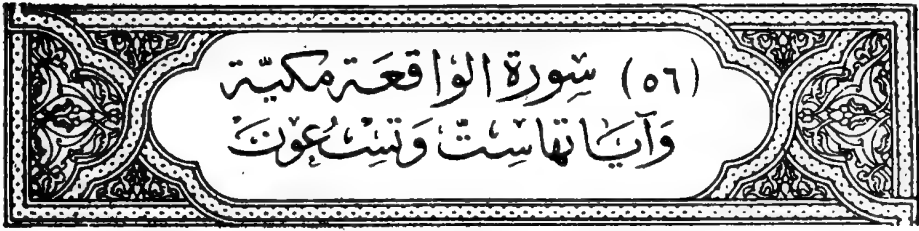 (٥٦) سورة الواقعة مكية
وآياتها ست وتسعون